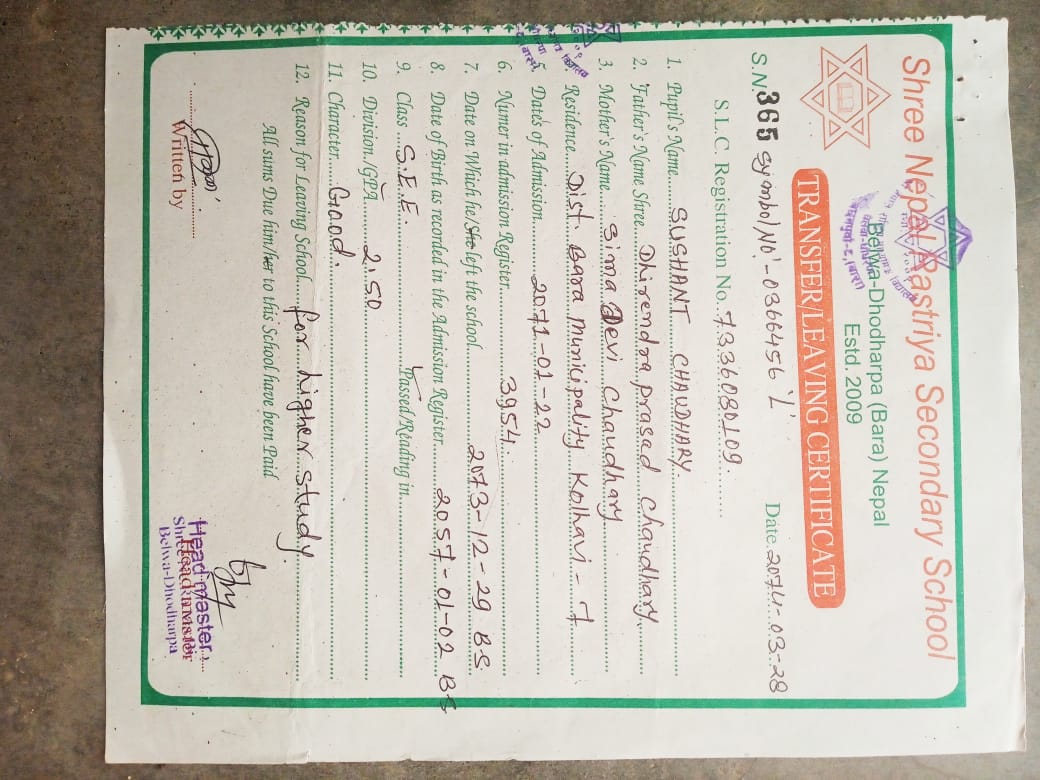 Shree Nepal Rastriya Secondary School
Belwa-Dhodharpa (Bara) Nepal
Estd. 2009
TRANSFER/LEAVING CERTIFICATE
S.N. 365 Symbol No:- 0366456 'L' Date. 2074-03-28
S.L.C. Registration No. 7336080109.
1. Pupil's Name SUSHANT CHAUDHARY.
2. Father's Name Shree Dhirendra prasad Chaudhary
3. Mother's Name Sima Devi Chaudhary
Residence Dist. Bara Municipality Kolhavi - 7
5. Dates of Admission 2071-01-22
6. Numer in admission Register 3954
7. Date on Which he/She left the school 2073-12-29 B.S
8. Date of Birth as recorded in the Admission Register 2057-01-02 B.S
9. Class S.E.E. Passed/Reading in
10. Division./GPA 2.50
11. Character Good.
12. Reason for Leaving School for higher study
All sums Due him/her to this School have been Paid
Written by
Head master
Head master
Shree
Belwa-Dhodharpa